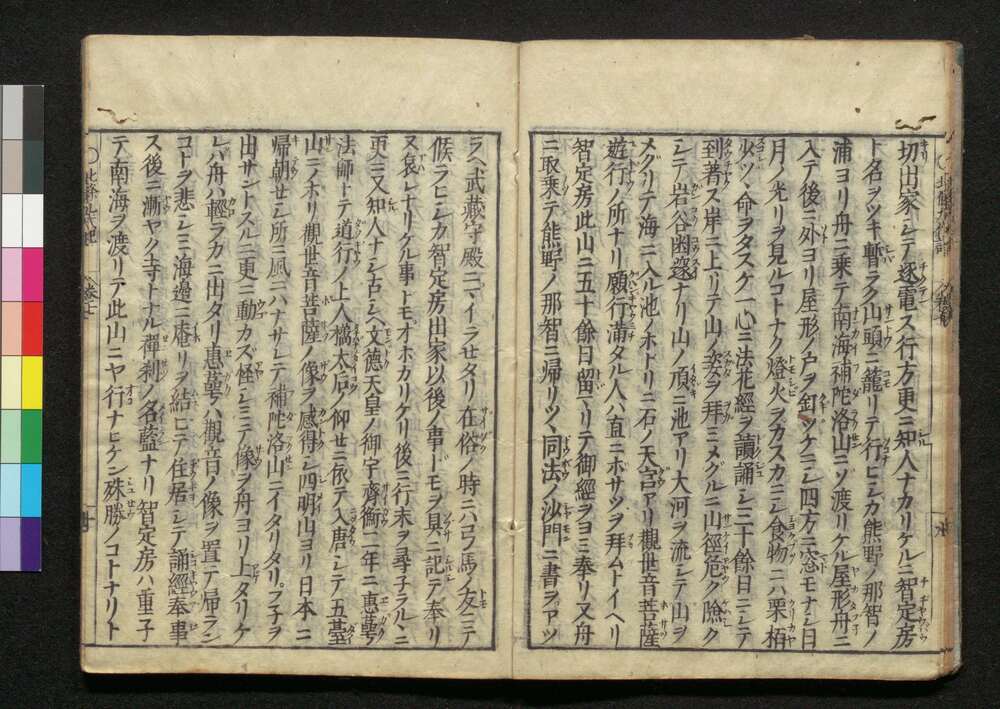 切出家シテ逐電ス行方更ニ知人ナカリケルニ智定房
ト名ヲツキ暫ラク山頭ニ籠リテ行ヒシカ熊野ノ那智ノ
浦ヨリ舟ニ乗テ南海補陀洛山ニゾ渡リケル屋形舟ニ
入テ後ニ外ヨリ屋形ノ戸ヲ釘ツケニシ四方ニ窓モナシ日
月ノ光リヲ見ルコトナク燈火ヲカスカニシ食物ニハ栗栢
少ツヽ命ヲタスケ一心ニ法花經ヲ讀誦シ三十餘日ニシテ
到著ス岸ニ上リテ山ノ姿ヲ拜ミメグルニ山徑危ク險ク
シテ岩谷幽邃ナリ山ノ頂ニ池アリ大河ヲ流シテ山ヲ
メグリテ海ニ入ル池ノホトリニ石ノ天宮アリ觀世音菩薩
遊行ノ所ナリ願行滿タル人ハ直ニボサツヲ拜ムトイヘリ
智定房此山ニ五十餘日留マリテ御經ヲヨミ奉リ又舟
ニ取乗テ熊野ノ那智ニ帰リツヽ同法ノ沙門ニ書ヲアツ
ラヘ武藏守殿ニマイラセタリ在俗ノ時ニハ弓馬ノ友ニテ
候ラヒシカ智定房出家以後ノ事ドモヲ具ニ記テ奉リ
ヌ哀レナリケル事トモオホカリケリ後ニ行末ヲ尋子ラルヽニ
更ニ又知人ナシ古シヘ文德天皇ノ御宇齊衡二年ニ惠萼
法師トテ道行ノ上人橘太后ノ仰セニ依テ入唐シテ五臺
山ニノホリ觀世音菩薩ノ像ヲ感得シ四明山ヨリ日本ニ
帰朝せシ所ニ風ニハナサレテ補陀洛山ニイタリタリ フ子ヲ
出サントスルニ更ニ動カズ怪シミテ像ヲ舟ヨリ上タリケ
レバ舟ハ輕ラカニ出タリ惠萼ハ觀音ノ像ヲ置テ帰ラン
コトヲ悲シミ海邊ニ庵リヲ結ヒテ住居シテ誦經奉事
ス後ニ漸ヤク寺トナル禪刹ノ名藍ナリ 智定房ハ重子
テ南海ヲ渡リテ此山ニヤ行ナヒケン殊勝ノコトナリト